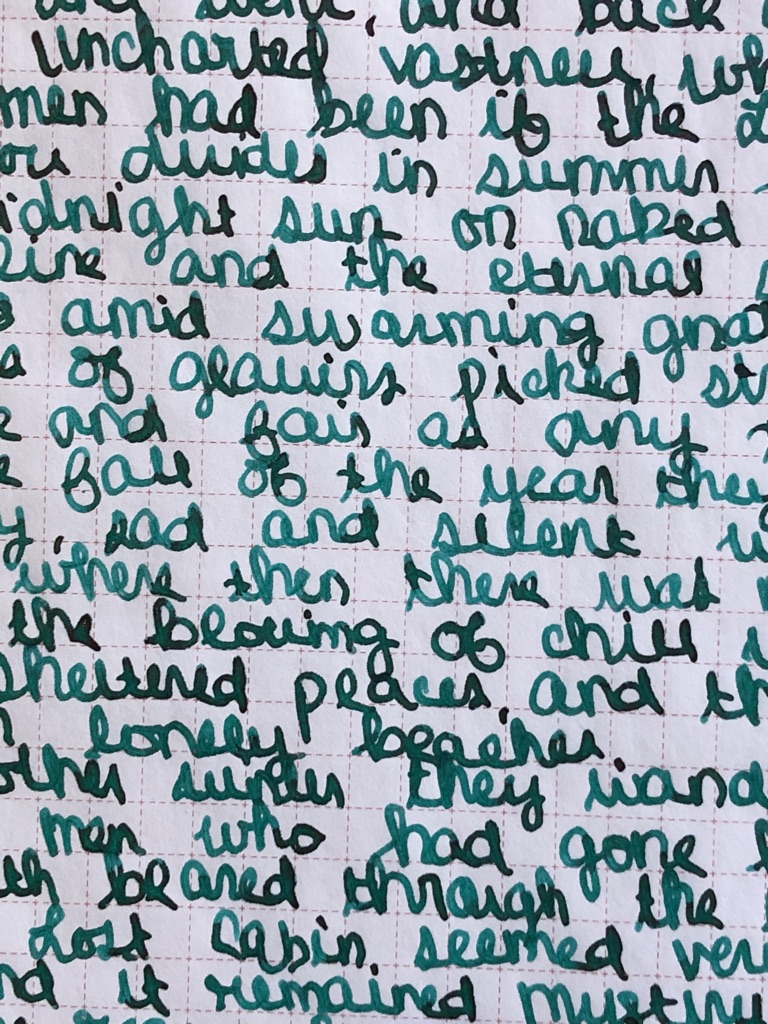 and back
uncharted vastness, wh
men had been if the L
divides in summer
idnight sun on naked
line and the eternal s
amid swarming gna
of glaciers picked str
and fair as any
fall of the year they
y, sad and silent
where then there was
the blowing of chill
sheltered places, and th
lonely beaches.
other winter they wand
men who had gone
th blazed through the
Lost Cabin seemed ver
nd it remained mystery